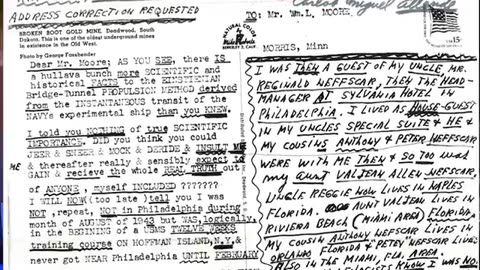 Carlos Miguel Allende
ADDRESS CORRECTION REQUESTED
BROKEN BOOT GOLD MINE, Deadwood, South
Dakota. This is one of the oldest underground mines
in existence in the Old West.
Photo by George Fossbender
NATURAL COLOR
BERKELEY 2, CALIF
TO: Mr. Wm. L. MOORE
MORRIS, Minn
15¢
Dear Mr. Moore; AS YOU SEE, there IS
a hullava bunch more SCIENTIFIC and
historical FACTS to the EINSTEINIAN
Bridge-Tunnel PROPULSION METHOD derived
from the INSTANTANEOUS transit of the
NAVY's experimental ship than you KNEW.
I told you NOTHING of true SCIENTIFIC
IMPORTANCE. DID you think you could
JEER & SNEER & MOCK & DECIDE & INSULT ME
& thereafter really & sensibly expect to
GAIN & recieve the whole REAL TRUTH out
of ANYONE, myself INCLUDED ???????
I WILL NOW (too late) tell you I was
NOT, repeat, NOT in Philadelphia during
month of AUGUST of 1943 but WAS, logically,
in the BEGINING of a USMS TWELVE WEEKS
training course ON HOFFMAN ISLAND, N.Y. &
never got NEAR Philadelphia UNTIL FEBRUARY
I WAS THEN A GUEST OF MY UNCLE, MR.
REGINALD NEFFSCAR, THEN THE HEAD-
MANAGER AT SYLVANIA HOTEL IN
PHILADELPHIA. I LIVED AS HOUSE-GUEST
IN MY UNCLES SPECIAL SUITE & HE &
MY COUSINS ANTHONY & PETER NEFFSCAR
WERE WITH ME THEN & SO TOO WAS
MY AUNT VALJEAN ALLEN NEFFSCAR,
UNCLE REGGIE NOW LIVES IN NAPLES
FLORIDA. AUNT VALJEAN LIVES IN
RIVIERA BEACH (MIAMI AREA) FLORIDA.
MY COUSIN ANTHONY NEFFSCAR LIVES IN
ORLANDO FLORIDA & "PETE" NEFFSCAR LIVES
ALSO IN THE MIAMI, FLA. AREA.
KNOW I WAS NO